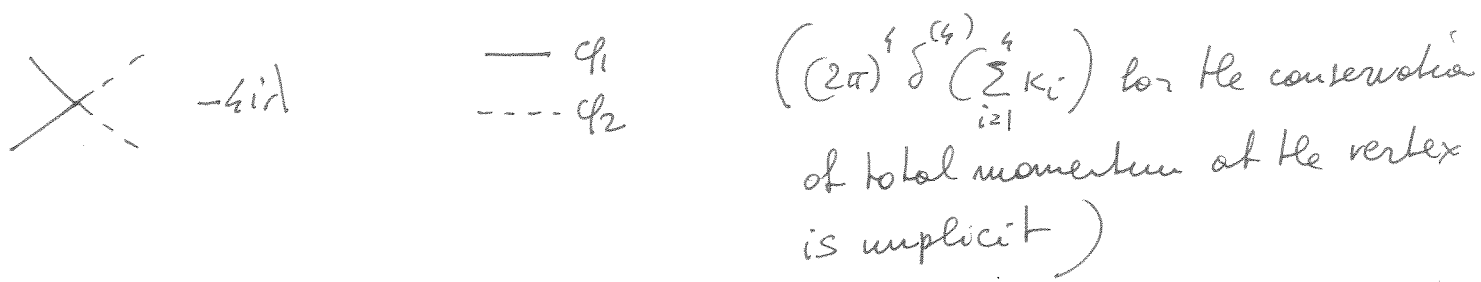 -4iλ φ₁ ((2π)⁴ δ⁽⁴⁾(∑_{i=1}^{4} k_i) for the conservation
φ₂
of total momentum at the vertex
is implicit)